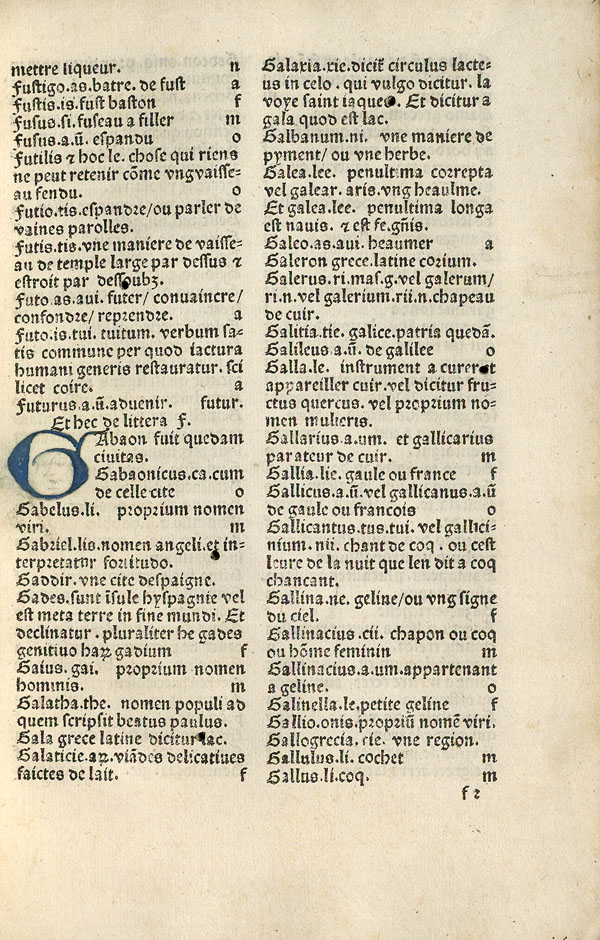 mettre liqueur. n
Fustigo.as.batre. de fust a
Fustis.is.fust baston f
Fusus.si.fuseau a filler m
Fusus.a.ū. espandu o
Futilis ⁊ hoc le. chose qui riens
ne peut retenir cōme vng vaisse=
au fendu. o
Futio.tis.espandre/ou parler de
vaines parolles.
Futis.tis.vne maniere de vaisse=
au de temple large par dessus ⁊
estroit par dessoubz.
Futo.as.aui. futer/ conuaincre/
confondre/ reprendre. a
Futo.is.tui. tuitum. verbum sa=
tis commune per quod iactura
humani generis restauratur. sci
licet coire. a
Futurus.a.ū.aduenir. futur.
Et hec de littera f.
GAbaon fuit quedam
ciuitas.
Gabaonicus.ca.cum
de celle cite o
Gabelus.li. proprium nomen
viri. m
Gabriel.lis.nomen angeli.et in=
terpretatur fortitudo.
Gaddir.vne cite despaigne.
Gades.sunt īsule hyspagnie vel
est meta terre in fine mundi. Et
declinatur.pluraliter he gades
genitiuo haꝝ gadium f
Gaius.gai. proprium nomen
hominis. m
Galatha.the. nomen populi ad
quem scripsit beatus paulus.
Gala grece latine dicitur lac.
Galaticie.aꝝ.viādes delicatiues
faictes de lait. f
Galaxia.xie.dicit̄ circulus lacte=
us in celo . qui vulgo dicitur. la
voye saint iaques. Et dicitur a
gala quod est lac.
Galbanum.ni. vne maniere de
pyment/ ou vne herbe.
Galea.lee. penultima correpta
vel galear. aris.vng heaulme.
Et galea.lee. penultima longa
est nauis. ⁊ est fe.gn̄is.
Galeo.as.aui. heaumer a
Galeron grece.latine corium.
Galerus.ri.mas.g.vel galerum/
ri.n.vel galerium.rii.n.chapeau
de cuir.
Galitia.tie. galice.patria quedā.
Galileus.a.ū. de galilee o
Galla.le. instrument a curer et
appareiller cuir.vel dicitur fru=
ctus quercus. vel proprium no=
men mulieris.
Gallarius.a.um. et gallicarius
parateur de cuir. m
Gallia.lie. gaule ou france f
Gallicus.a.ū.vel gallicanus.a.ū
de gaule ou francois o
Gallicantus.tus.tui. vel gallici=
nium.nii. chant de coq . ou cest
leure de la nuit que len dit a coq
chancant.
Gallina.ne. geline/ou vng signe
du ciel. f
Gallinacius.cii. chapon ou coq
ou hōme feminin m
Gallinacius.a.um.appartenant
a geline. o
Galinella.le.petite geline f
Gallio.onis.propriū nomē viri.
Gallogrecia.cie. vne region.
Gallulus.li. cochet m
Gallus.li.coq. m
f 2